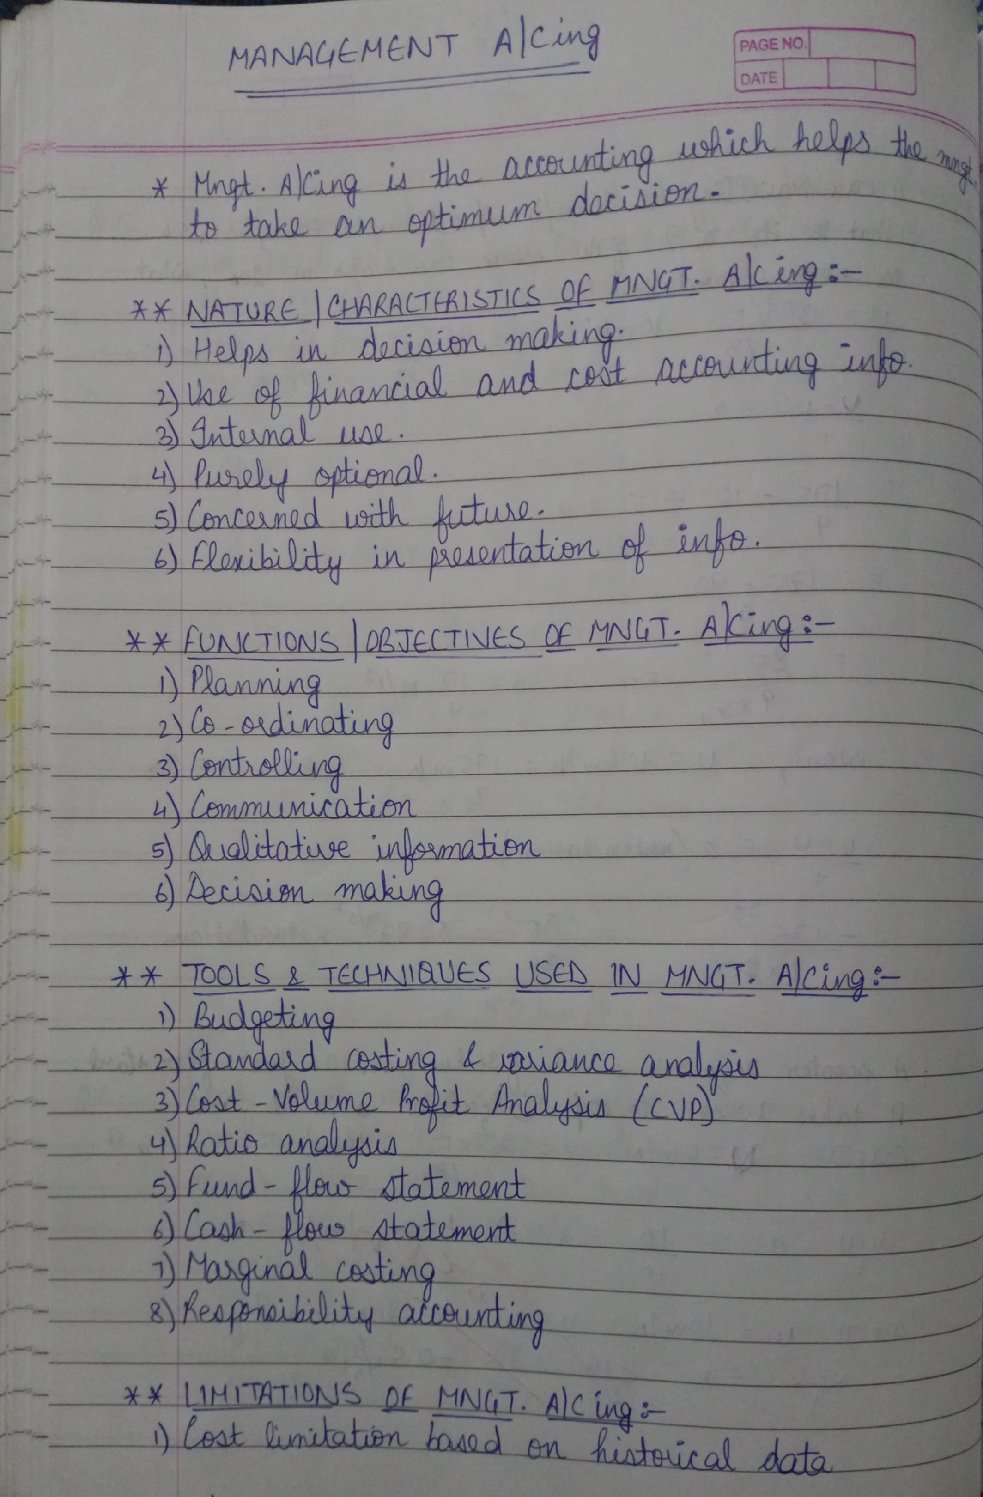 MANAGEMENT A/Cing
PAGE NO.
DATE
* Mngt. A/Cing is the accounting which helps the mngt
to take an optimum decision.
** NATURE / CHARACTERISTICS OF MNGT. A/Cing :-
1) Helps in decision making.
2) Use of financial and cost accounting info.
3) Internal use.
4) Purely optional.
5) Concerned with future.
6) Flexibility in presentation of info.
** FUNCTIONS / OBJECTIVES OF MNGT. A/Cing :-
1) Planning
2) Co-ordinating
3) Controlling
4) Communication
5) Qualitative information
6) Decision making
** TOOLS & TECHNIQUES USED IN MNGT. A/Cing :-
1) Budgeting
2) Standard costing & variance analysis
3) Cost - Volume Profit Analysis (CVP)
4) Ratio analysis
5) Fund - flow statement
6) Cash - flow statement
7) Marginal costing
8) Responsibility accounting
** LIMITATIONS OF MNGT. A/Cing :-
1) Cost limitation based on historical data